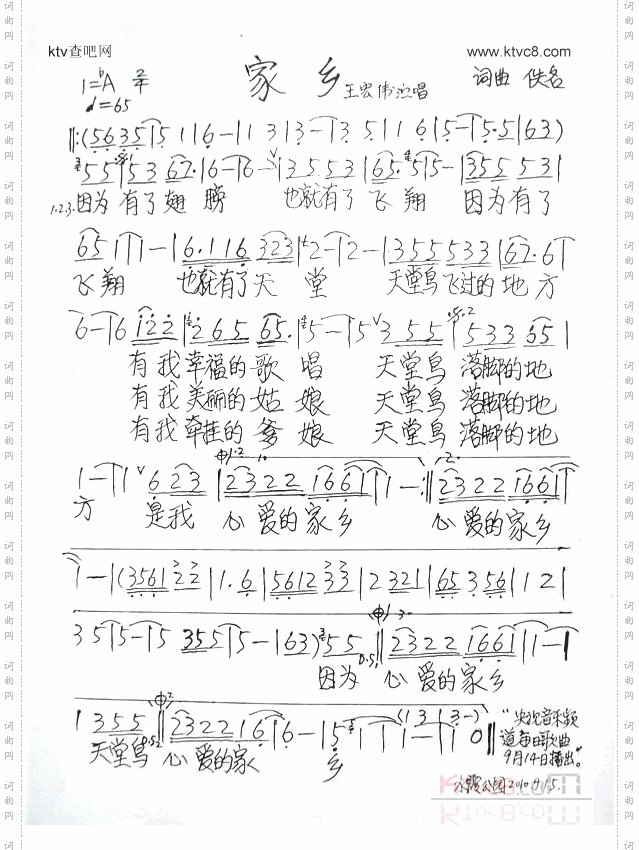 ktv查吧网
www.ktvc8.com
家 乡
王宏伟演唱
词曲 佚名
1=bA 2/4
♩=65
‖:(5635|5 1|6-|1 3|3-|3 5|1 6|5-|5·5|63)
55|53 67·|6-|6-|3553|65·|5|5-|355 531
1.2.3. 因为有了翅膀 也就有了飞翔 因为有了
65 1|1-|6·116 323|2-|2-|355 533|67·6|
飞翔 也就有了天堂 天堂鸟飞过的地方
6-|6 122|265 65·|5-|5 355|533 65|
有我幸福的歌唱 天堂鸟 落脚的地
有我美丽的姑娘 天堂鸟 落脚的地
有我牵挂的爹娘 天堂鸟 落脚的地
1-|1 623|2322 1661|1-:‖2322 1661|
方 是我 心爱的家乡 心爱的家乡
1-|(3561 22|1·6|5612 33|2 321|65 356|1 2|
3 5|5-|5 355|5-|63) 55‖2322 1661|1-|
因为 心爱的家乡
1 355‖2322 16|6-|5 1|1-|1 0‖
天堂鸟 心爱的家 乡
(13|3-)
"央视音乐频
道每日歌曲
9月14日播出。"
公园2010.9.15.
KTVC8.COM
词曲网